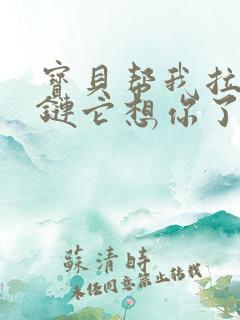 寶貝幫我拉
鏈它想你了
蘇清時
未經同意禁止轉載